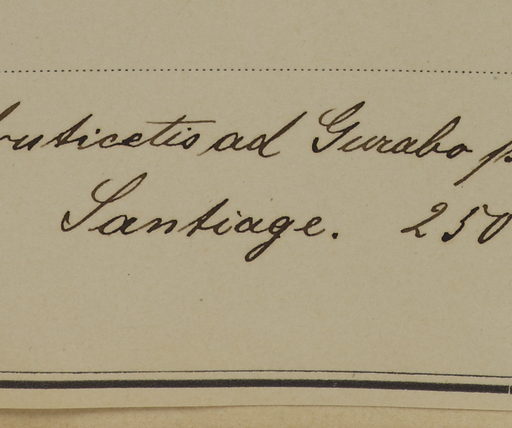 fruticetis ad Gurabo p
Santiage. 250